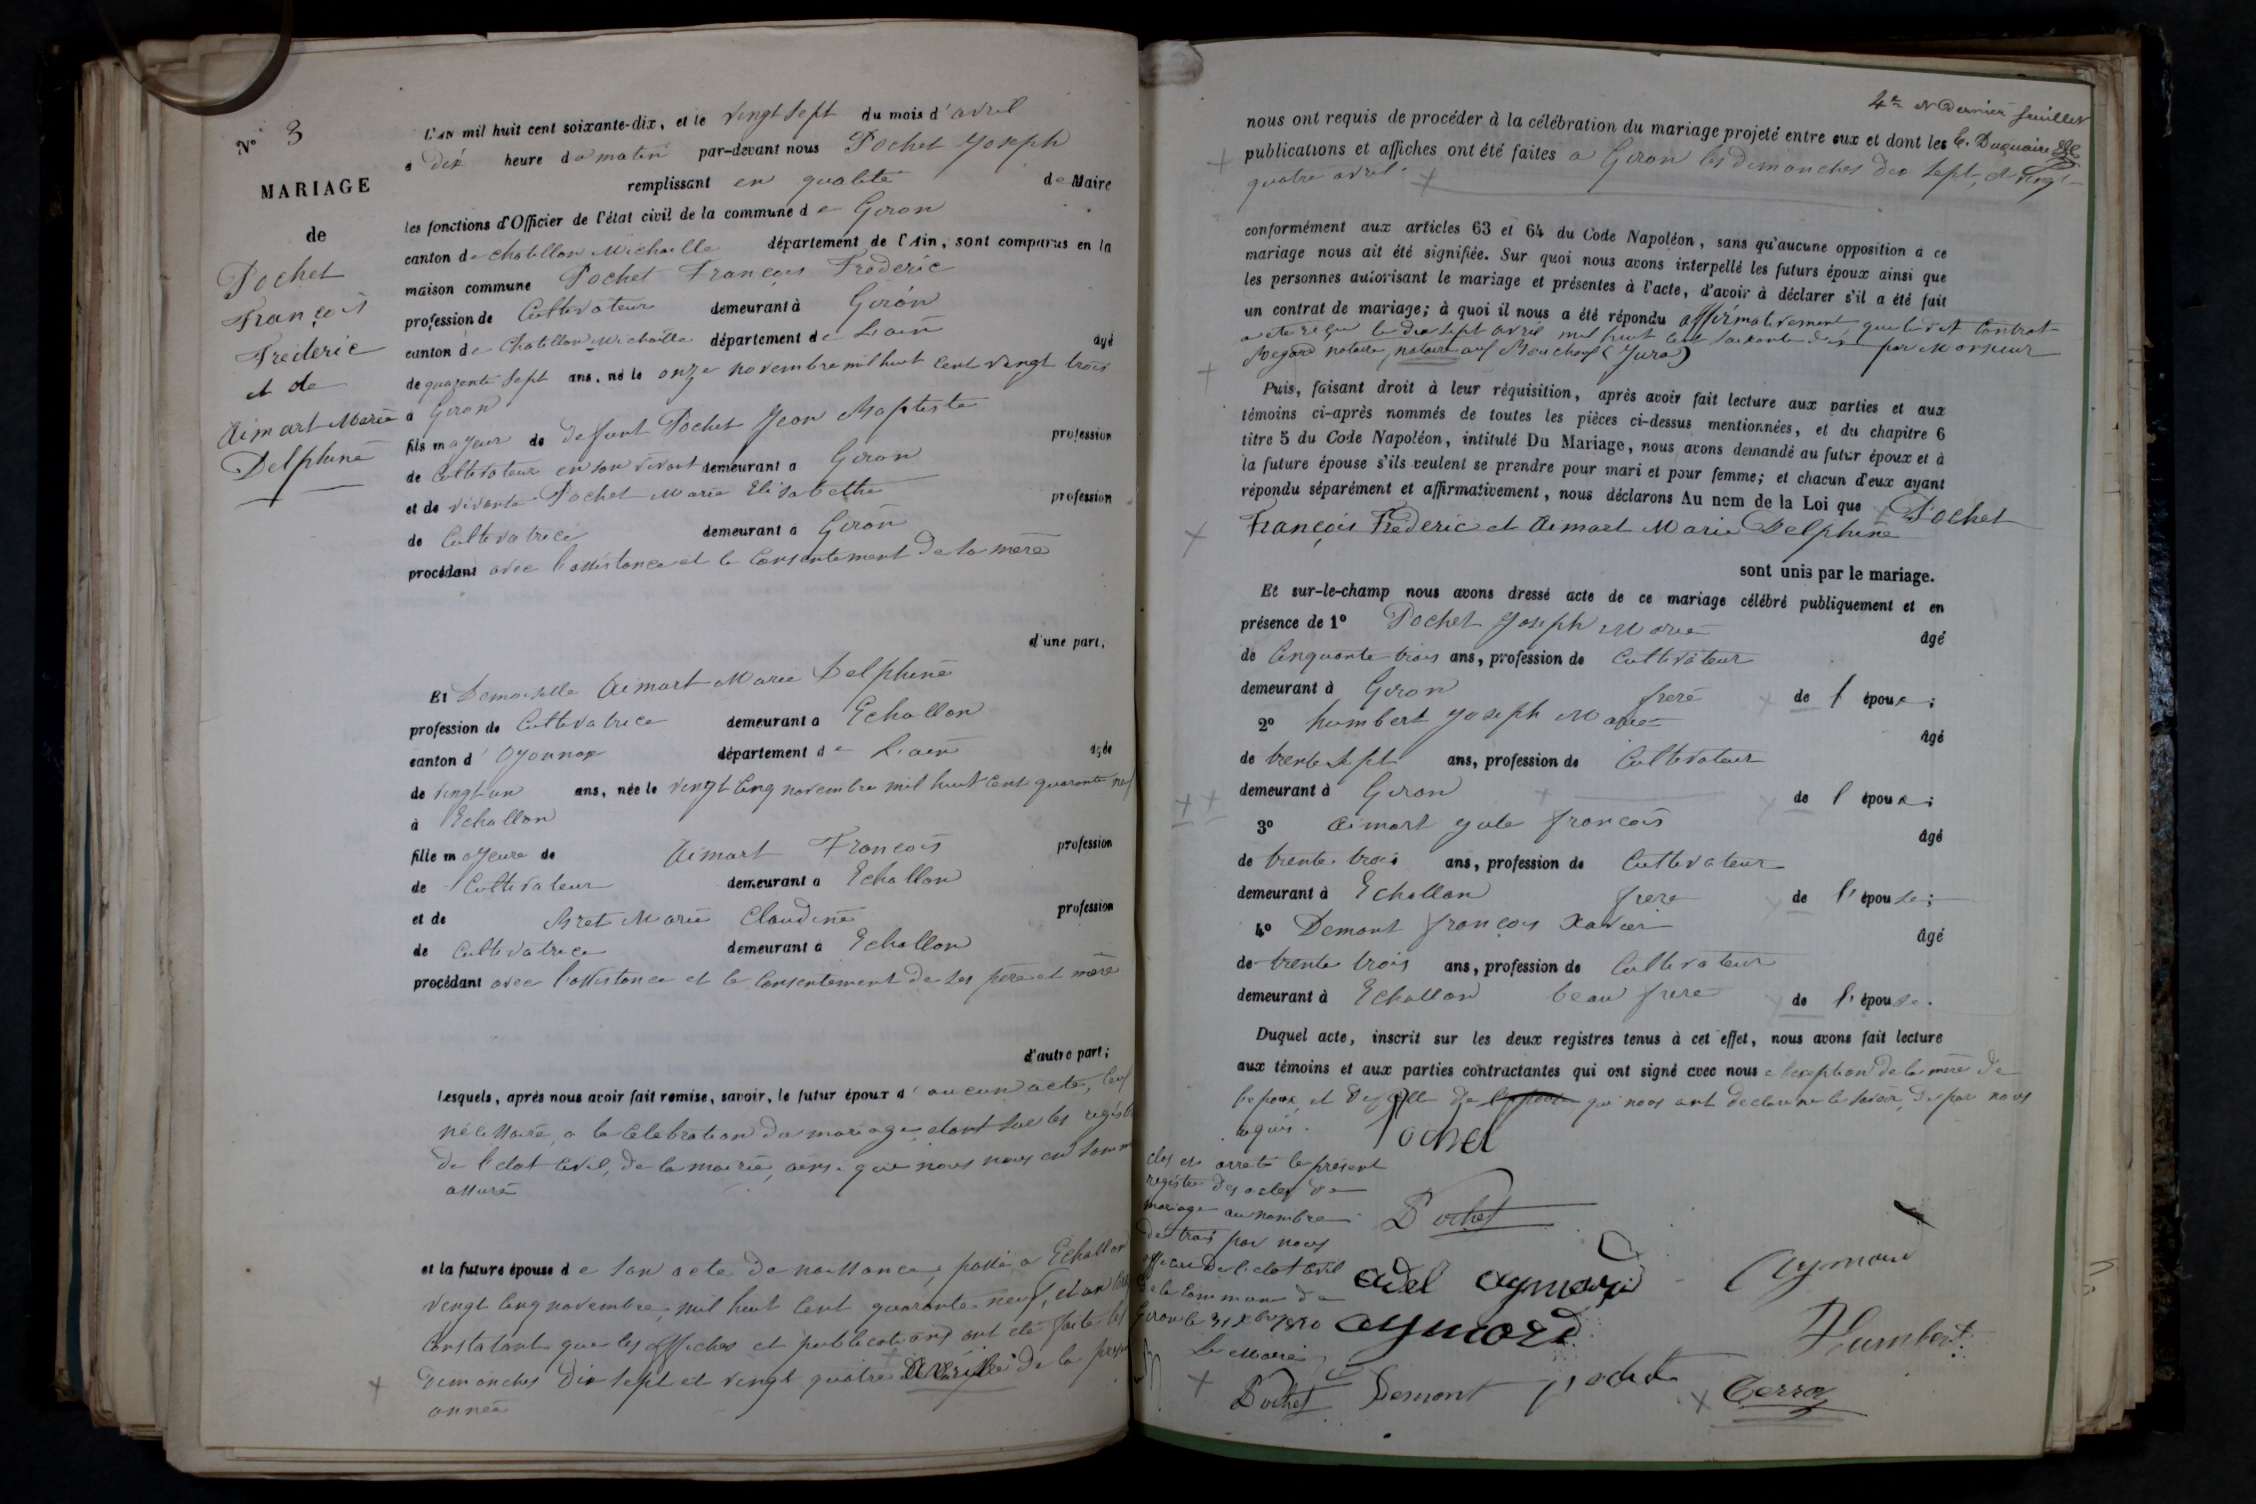 N° 3
MARIAGE
de
Pochet
François
Fréderic
et de
Aimart Marie
Delphine
L'AN mil huit cent soixante-dix, et le vingt sept du mois d'avril
a dix heure du matin par-devant nous Pochet Joseph
remplissant en qualité de Maire
les fonctions d'Officier de l'état civil de la commune de Giron
canton de chatillon Michaille département de l'Ain, sont comparus en la
maison commune Pochet François Fréderic
profession de Cultivateur demeurant à Giron
canton de Chatillon Michaille département de L'ain âgé
de quarente sept ans, né le onze novembre mil huit cent vingt trois
à Giron
fils majeur de defunt Pochet Jean Baptiste profession
de Cultivateur en son vivant demeurant a Giron
et de vivante Pochet Marie Elisabethe profession
de Cultivatrice demeurant a Giron
procédant avec l'assistance et le consentement de la mère
d'une part,
Et Demoiselle Aimart Marie Delphine
profession de Cultivatrice demeurant a Echallon
canton d'Oyonnax département de L'ain âgée
de vingt un ans, née le vingt cinq novembre mil huit cent quarante neuf
à Echallon
fille majeure de Aimart François profession
de Cultivateur demeurant a Echallon
et de Bret Marie Claudine profession
de Cultivatrice demeurant à Echallon
procédant avec l'assistance et le consentement de ses père et mère
d'autre part;
Lesquels, après nous avoir fait remise, savoir, le futur époux d'aucun acte,
nécessaire a la Célébration du mariage étant sur les
de l'état civil, de la mairie, ainsi que nous nous en
assuré
et la future épouse de son acte de naissance, passé a Echallon
vingt cinq novembre, mil huit cent quarante neuf, et un
Constatant que les affiches et publications ont été faite les
Dimanches dix sept et vingt quatre avril de la
année
4e et Dernier feuillet
nous ont requis de procéder à la célébration du mariage projeté entre eux et dont les E. Duquaire
publications et affiches ont été faites a Giron les dimanches dix sept, et vingt
quatre avril.
conformément aux articles 63 et 64 du Code Napoléon, sans qu'aucune opposition à ce
mariage nous ait été signifiée. Sur quoi nous avons interpellé les futurs époux ainsi que
les personnes autorisant le mariage et présentes à l'acte, d'avoir à déclarer s'il a été fait
un contrat de mariage; à quoi il nous a été répondu affirmativement, que le dit Contrat
a été reçu le dix sept avril mil huit cent soixante dix par Monsieur
Regard notaire, notaire aux Bouchoux (Jura)
Puis, faisant droit à leur réquisition, après avoir fait lecture aux parties et aux
témoins ci-après nommés de toutes les pièces ci-dessus mentionnées, et du chapitre 6
titre 5 du Code Napoléon, intitulé Du Mariage, nous avons demandé au futur époux et à
la future épouse s'ils veulent se prendre pour mari et pour femme; et chacun d'eux ayant
répondu séparément et affirmativement, nous déclarons Au nom de la Loi que Pochet
François Fréderic et Aimart Marie Delphine
sont unis par le mariage.
Et sur-le-champ nous avons dressé acte de ce mariage célébré publiquement et en
présence de 1° Pochet Joseph Marie âgé
de Cinquante trois ans, profession de Cultivateur
demeurant à Giron frère de l'époux;
2° humbert Joseph Marie âgé
de trente sept ans, profession de Cultivateur
demeurant à Giron de l'époux;
3° Aimart Jule françois âgé
de trente trois ans, profession de Cultivateur
demeurant à Echallon frere de l'épouse;
4° Demont françois Xavier âgé
de trente trois ans, profession de Cultivateur
demeurant à Echallon beau frere de l'épouse.
Duquel acte, inscrit sur les deux registres tenus à cet effet, nous avons fait lecture
aux témoins et aux parties contractantes qui ont signé avec nous a l'exeption de la mère de
l'epoux, et de celle de l'epouse qui nous ont declaré ne le savoir, de par nous
requis.
Pochet
clos et arreté le présent
registre des actes de
mariage au nombre
de trois par nous
officier de l'etat civil
de la commune de
Giron le 31 Xbre 1870
Le Maire
Pochet
Pochet
adel aymard
Aymard
aymard
Humbert
Demont
pochet